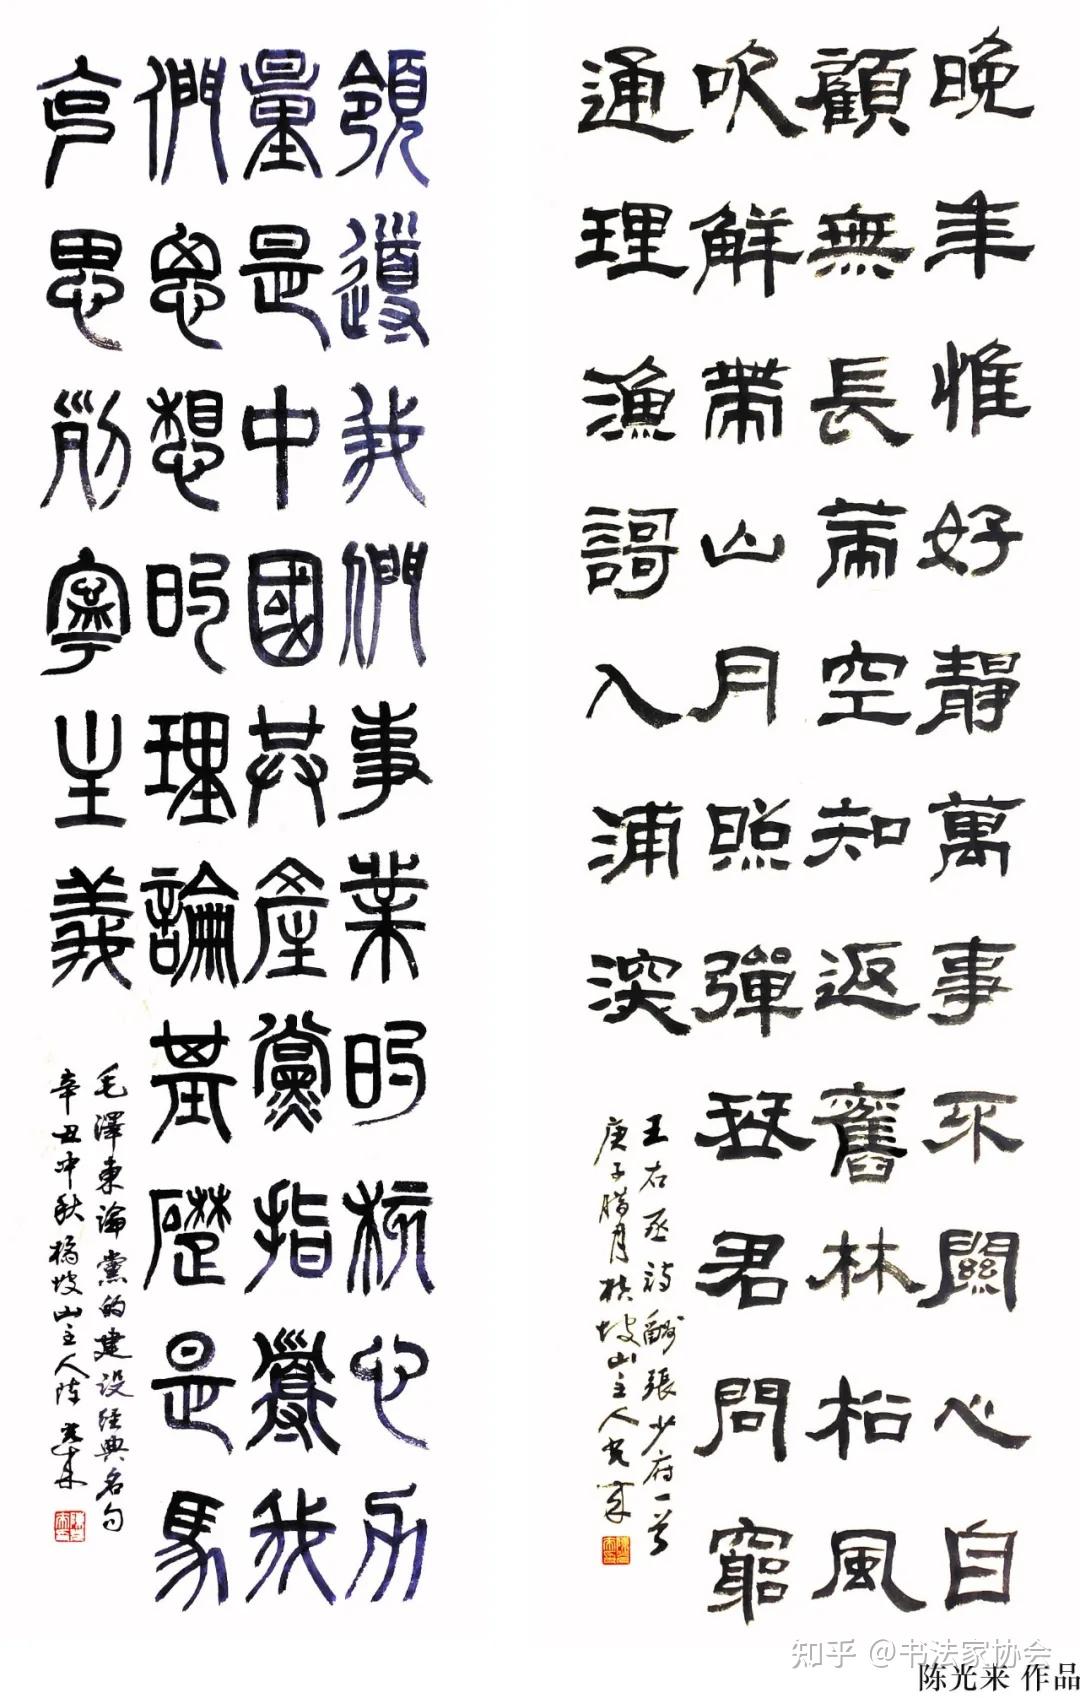 晚年惟好靜萬事不關心自
顧無長策空知返舊林松風
吹解帶山月照彈琴君問窮
通理漁謌入浦深
王右丞诗酬張少府一首
庚子腊月橘坡山主人光来
領導我們事業的核心力
量是中國共產黨指導我
們思想的理論基礎是馬
克思列寧主義
毛澤東論黨的建设经典名句
辛丑仲秋橘坡山主人陈光来
知乎 @书法家协会
陈光来 作品